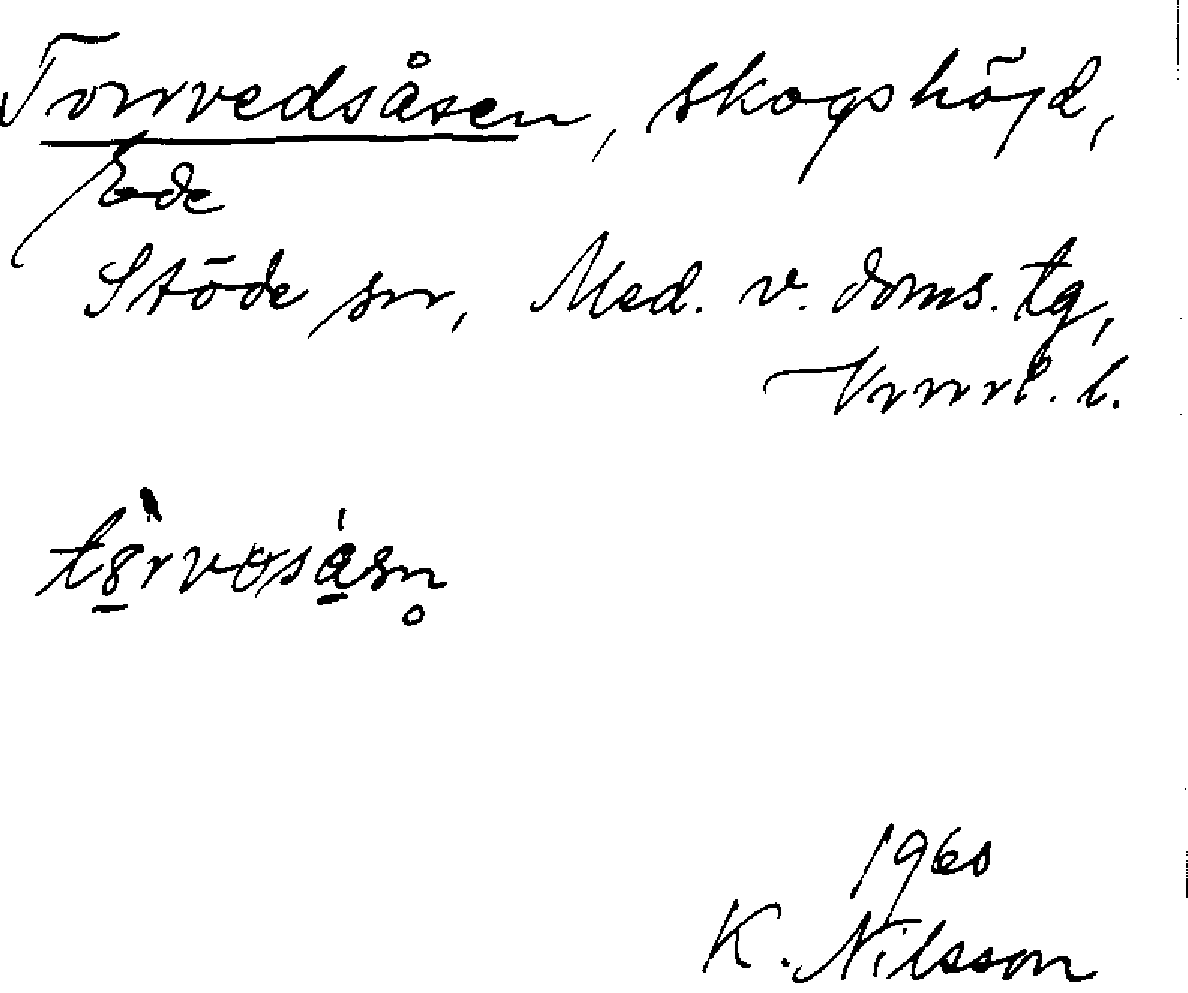 Torrvedsåsen, skogshöjd,
Ede
Stöde sn, Med. v. doms. tg,
Vrnrl. l.
1960
K. Nilsson